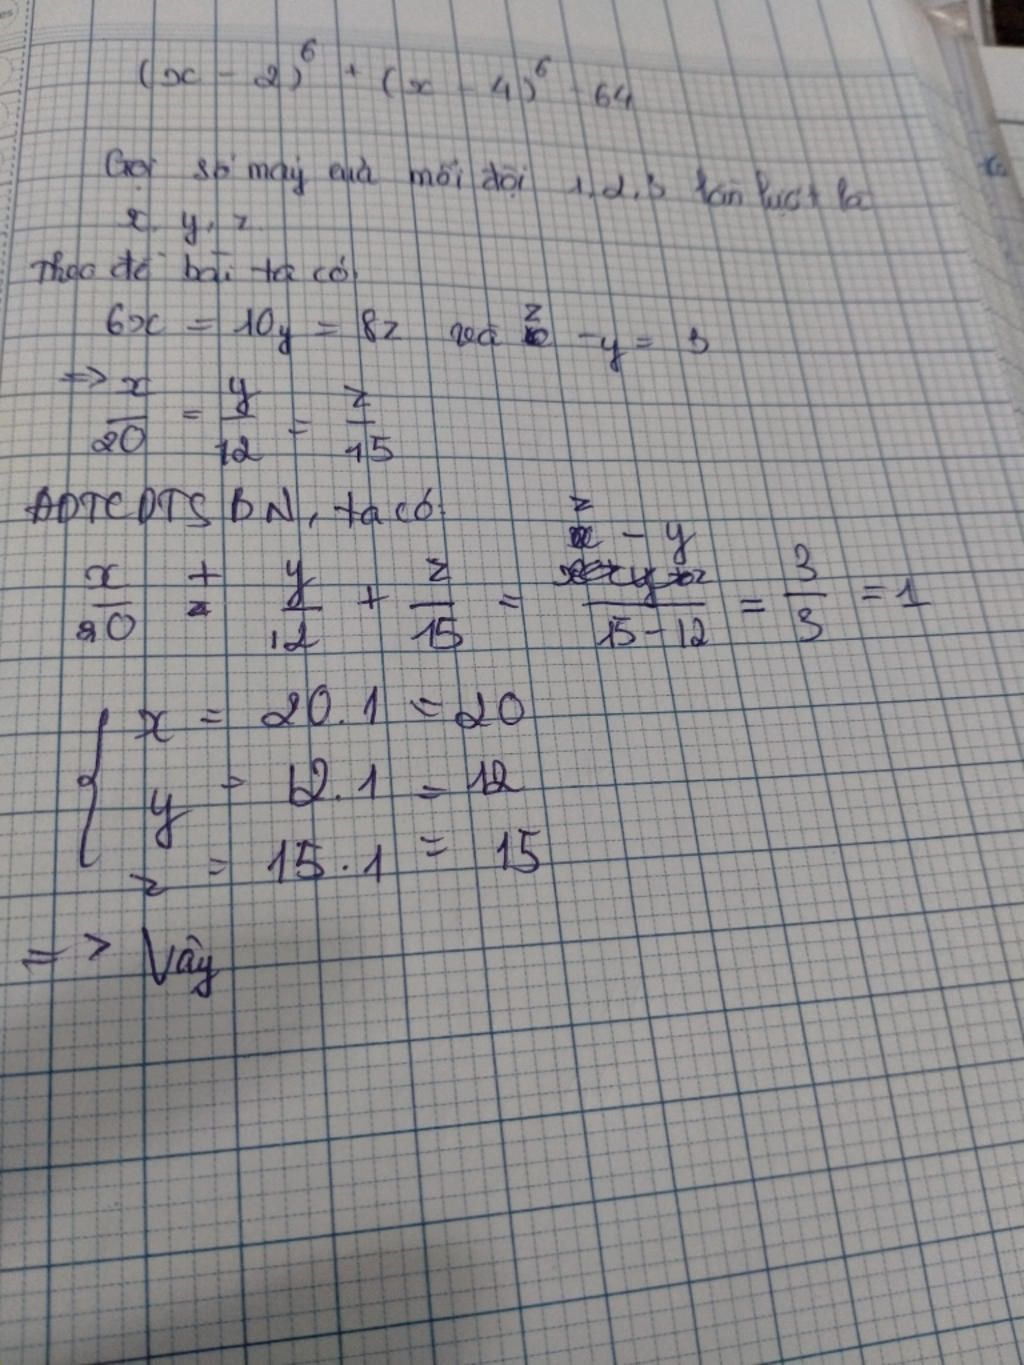 (x - 2)⁶ + (x - 4)⁶ - 64
Gọi số máy của mỗi đội 1, 2, 3 lần lượt là
x, y, z
Theo đề bài ta có
6x = 10y = 8z và z - y = 3
=> x/20 = y/12 = z/15
ADTCDTSBN, ta có
x/20 + y/12 + z/15 = z - y / 15 - 12 = 3/3 = 1
x = 20.1 = 20
y = 12.1 = 12
z = 15.1 = 15
=> Vậy